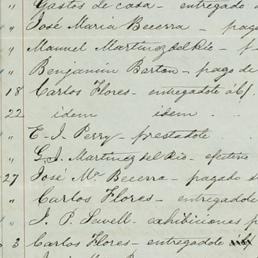 " Gastos de casa - entregado a
" José María Becerra - pago
" Manuel Martinez del Rio - p
" Benjamin Barton - pago de
18 Carlos Flores - entregadole á
22 idem idem
" E. J. Perry - prestadole
" G. J. Martinez del Rio - efectivo
27 José Ma Becerra - pagado s
" Carlos Flores - entregadole
" J. P. Lovell - exhibiciones p
3 Carlos Flores - entregadole